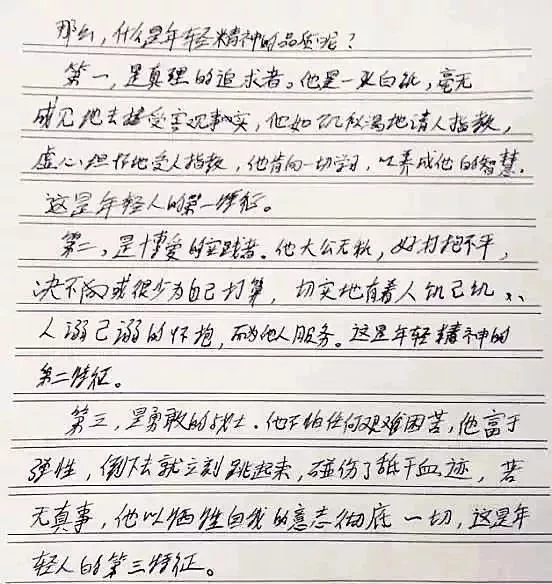 那么,什么是年轻精神的品质呢?
第一,是真理的追求者。他是一张白纸,毫无
成见地去接受客观事实,他如饥似渴地请人指教,
虚心坦怀地受人指教,他肯向一切学习,以养成他的智慧.
这是年轻人的第一特征。
第二,是博爱的实践者.他大公无私,好打抱不平,
决不或很少为自己打算,切实地有着人饥己饥、
人溺己溺的怀抱,而为他人服务。这是年轻精神的
第二特征。
第三,是勇敢的战士.他不怕任何艰难困苦,他富于
弹性,倒下去就立刻跳起来,碰伤了舐干血迹,若
无其事,他以牺牲自我的意志彻底一切,这是年
轻人的第三特征。